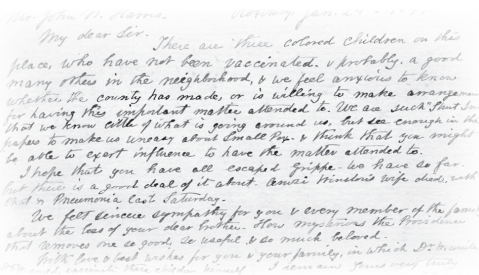 Mr. John N. Harris
My dear Sir.
There are three colored children on this
place, who have not been vaccinated. & probably. a good
many others in the neighborhood, & we feel anxious to know
whether the county has made, or is willing to make arrangements
for having this important matter attended to. We are such
that we know little of what is going around us, but see enough in the
papers to make us uneasy about Small Pox. & think that you might
be able to exert influence to have the matter attended to.
I hope that you have all escaped Grippe. We have so far.
but there is a good deal of it about. wife died, with
that & Pneumonia last Saturday.
We felt sincere sympathy for you & every member of the family
about the loss of your dear brother. How mysterious the Providence
that removes one so good, so useful, & so much beloved.
With love & best wishes for you & your family, in which Dr.
vaccinate these children himself I remain yours very truly